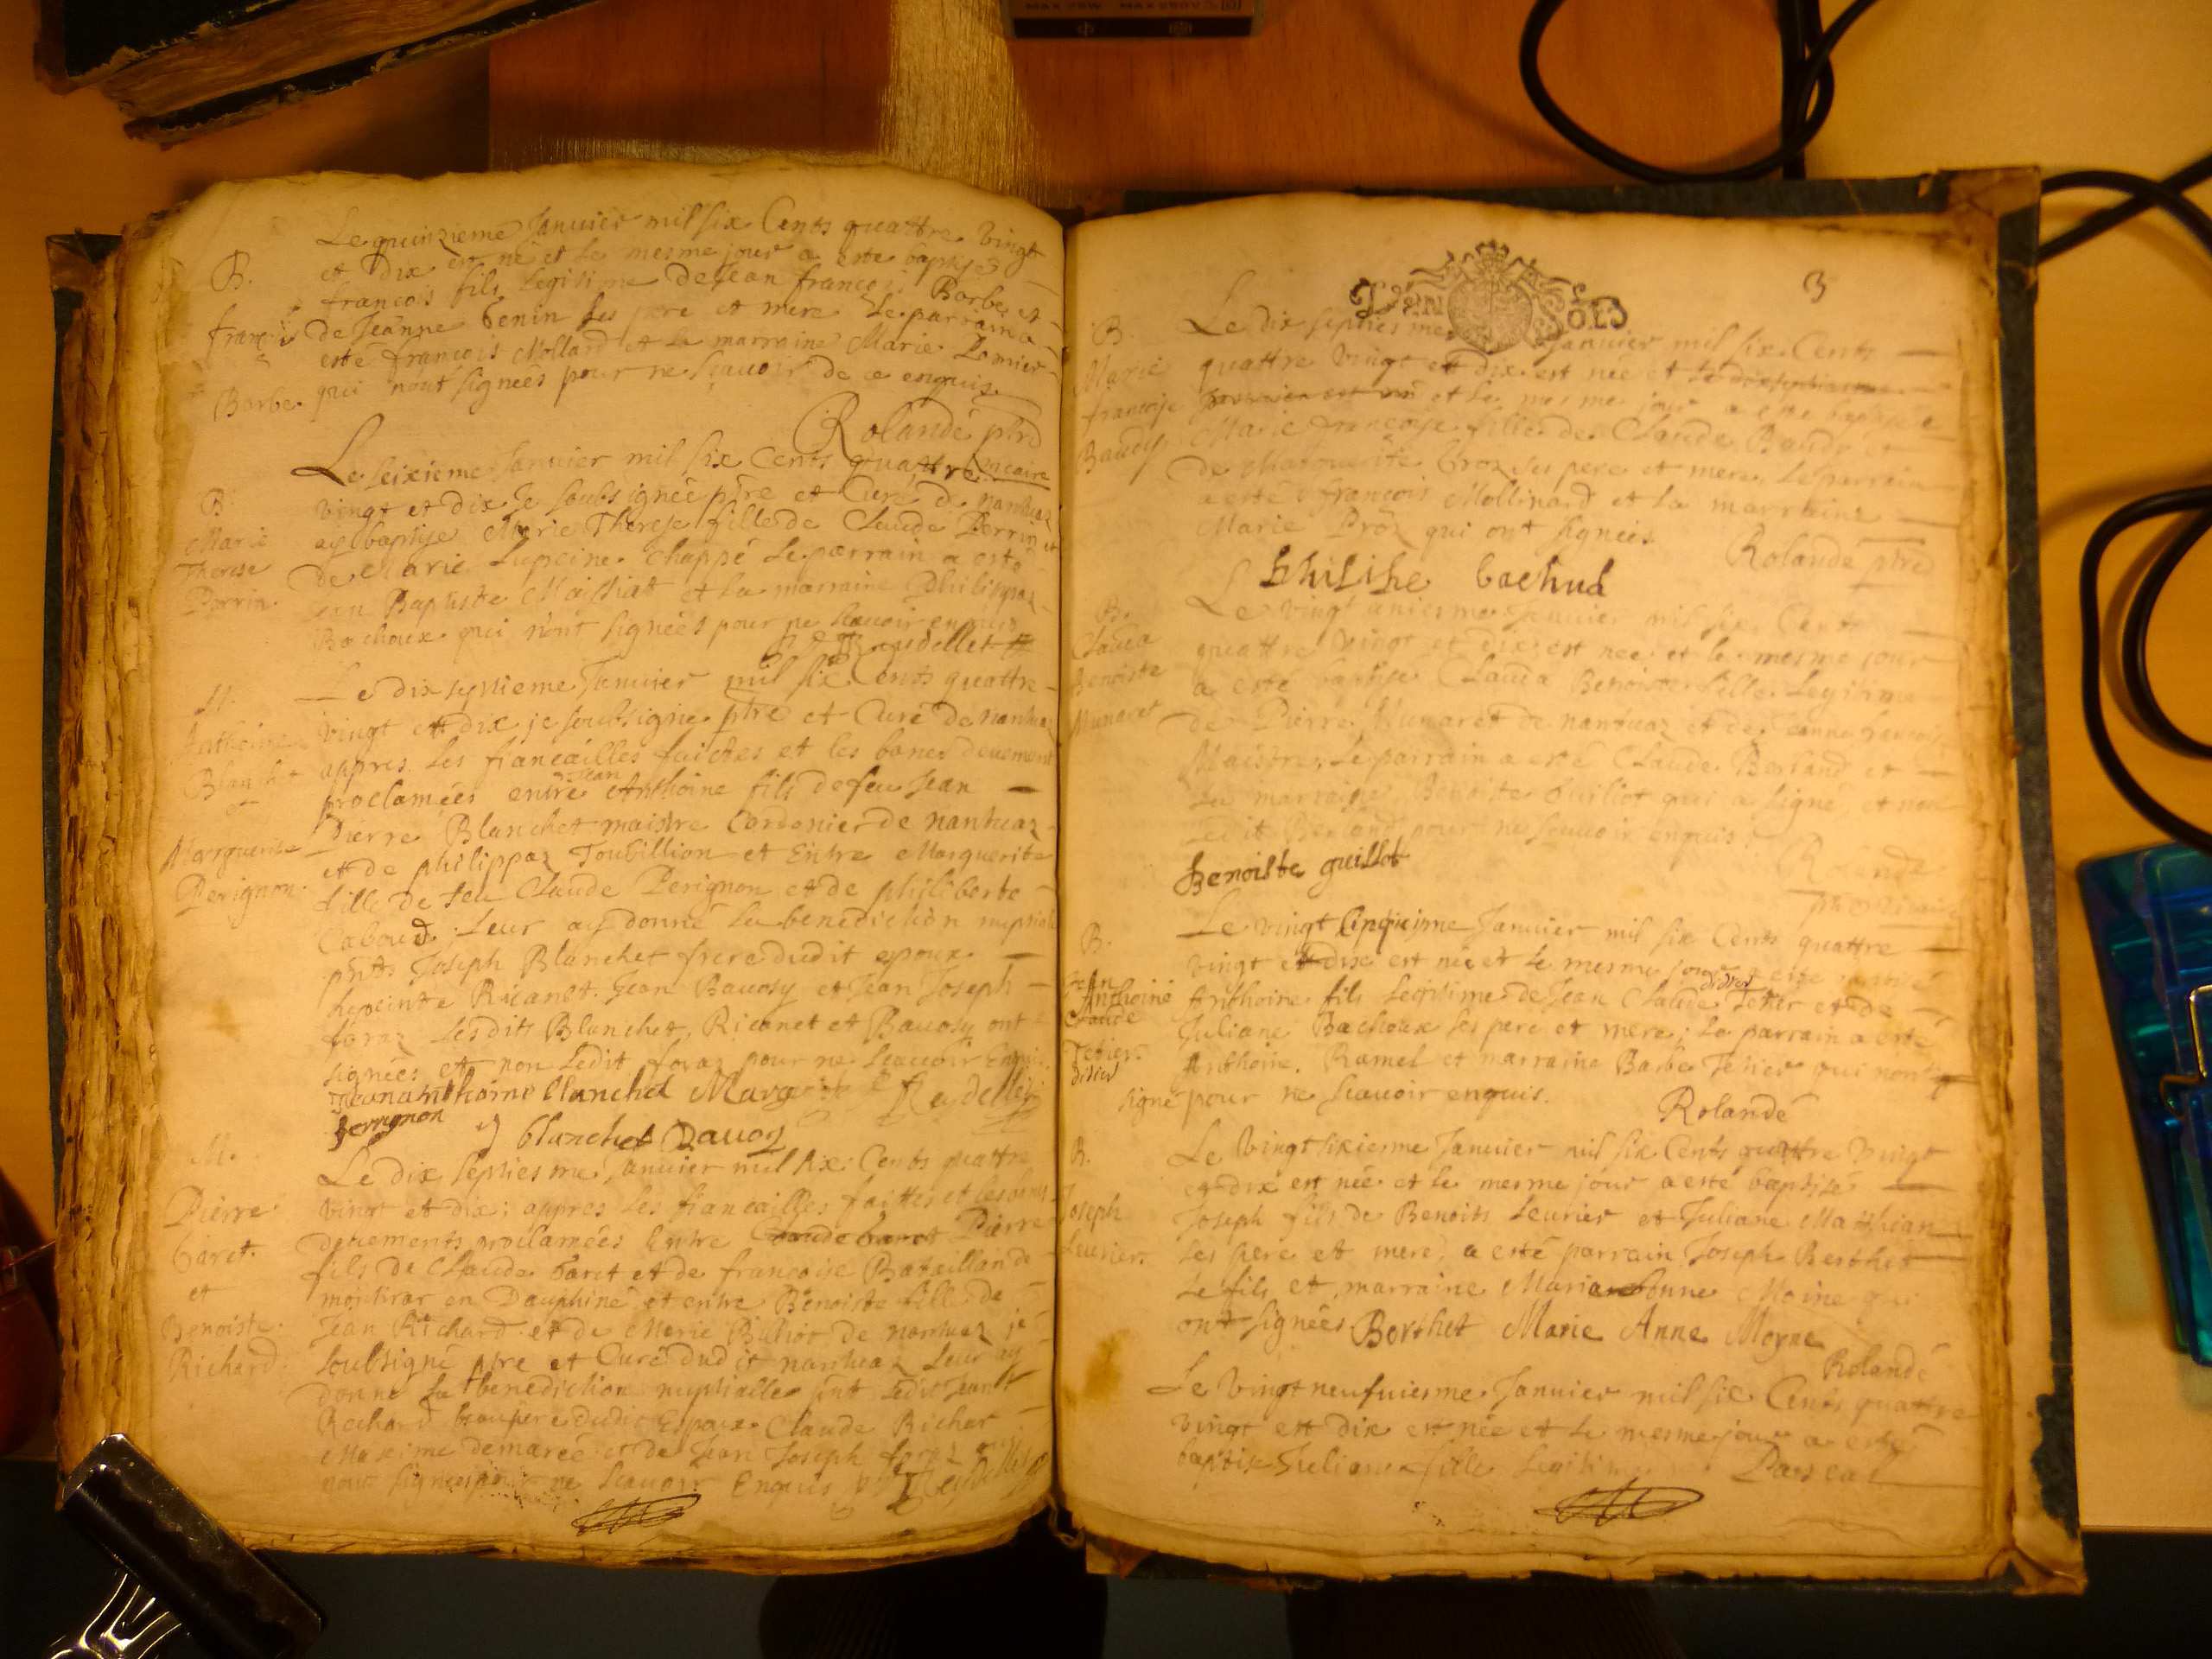 Le quinzieme Janvier mil six Cents quattre vingt
et dix est né et le mesme jour a este baptisé
B.
francois fils legitime de Jean francois Barbe et
francois
de Jeanne benin ses pere et mere Le parrain a
esté francois Mollard et la marraine Marie
Barbe
qui n'ont signeés pour ne scavoir de ce enquis
Rolande ptre
vicaire
Le seixieme Janvier mil six Cents quattre
B.
vingt et dix Je soubsignée ptre et Curé de nantuaz
Marie
Therese
Perrin
ay baptise Marie Therese fille de Claude Perrin et
de Marie chappé Le parrain a esté
Jean Baptiste Maissiat et la marraine Philippaz
Bachoux qui n'ont signeés pour ne scavoir enquis
Le dix septieme Janvier mil six Cents quattre
M.
vingt et dix je soubsigne ptre et Curé de nantuaz
Anthoine
Blanchet
et
appres les fiancailles faictes et les banes deuement
Jean
proclamées entre Anthoine fils de feu Jean
Pierre Blanchet maistre Cordonier de nantuaz
Marguerite
Perignon
et de philippaz Toubillion et Entre Marguerite
fille de feu Claude Perignon et de philiberte
Caboud Leur ay donné la benediction nuptiale
pnts Joseph Blanchet frere dudit epoux
Ricanet Jean Bavosy et Jean Joseph
foraz Lesdits Blanchet, Ricanet et Bavosy ont
signées et non Ledit foraz pour ne scavoir Enquis
Jeananthoine blanchet
perrignon
J blanchet
Le dix septiesme Janvier mil six Cents quattre
M.
Pierre
baret
et
Benoiste
Richard
vingt et dix appres les fiancailles faittes et les banes
deuements proclamées Entre Claude baret Pierre
fils de Claude baret et de francoise Bataillan de
en Dauphiné et entre Benoiste fille de
Jean Richard et de Marie de nantuaz je
soubsigné ptre et Curé dudit nantuaz Leur ay
donné la benediction nuptialle pnt Ledit Jean
Rachard beaupere dudit Espoux Claude Richar
Maxime demareé et de Jean Joseph foraz qui
nont signées pour ne scavoir Enquis
3
DEN SOLS
B.
Marie
francoise
Baudy
Le dix septiesme Janvier mil six Cents
quattre vingt et dix est nee et le dixseptiesme
Janvier est né et le mesme jour a este baptisée
Marie francoise fille de Claude Baudy et
de Marguerite broz ses pere et mere Le parrain
a esté francois Mollinard et la marraine
Marie Proz qui ont signees
Rolande ptre
philipe bachud
B.
Clauda
Benoiste
Munaret
Le vingt uniesme Janvier mil six Cents
quattre vingt et dix est nee et le mesme jour
a esté baptise Clauda Benoiste fille legitime
de Pierre Munaret de nantuaz et de Jeanne francoise
Maistre, Le parrain a esté Claude Berland et
la marraine Benoiste Guillot qui a signé et non
Ledit Berland pour ne scavoir enquis
Benoiste guillot
Le vingt cinquiesme Janvier mil six Cents quattre
B.
Jean
Anthoine
Claude
Tetier
didier
vingt et dix est née et le mesme jour a este baptisé
didier
Anthoine fils legitime de Jean Claude Tetier et de
Juliane Bachoux ses pere et mere; Le parrain a esté
Anthoine Ramel et marraine Barbe Tetier qui nont
signé pour ne scavoir enquis.
Rolandé
B.
Joseph
Leurier
Le Vingt sixiesme Janvier mil six Cents quattre vingt
et dix est née et le mesme jour a esté baptisé
Joseph fils de Benoits Leurier et Juliane Matthian
ses pere et mere, a esté parrain Joseph Berthet
le fils et marraine Marianne Moine qui
ont signées Berthet Marie Anne Moyne
Rolandé
Le Vingt neufuiesme Janvier mil six Cents quattre
vingt et dix est née et le mesme jour a esté
baptise Juliane fille Legitime Pascal